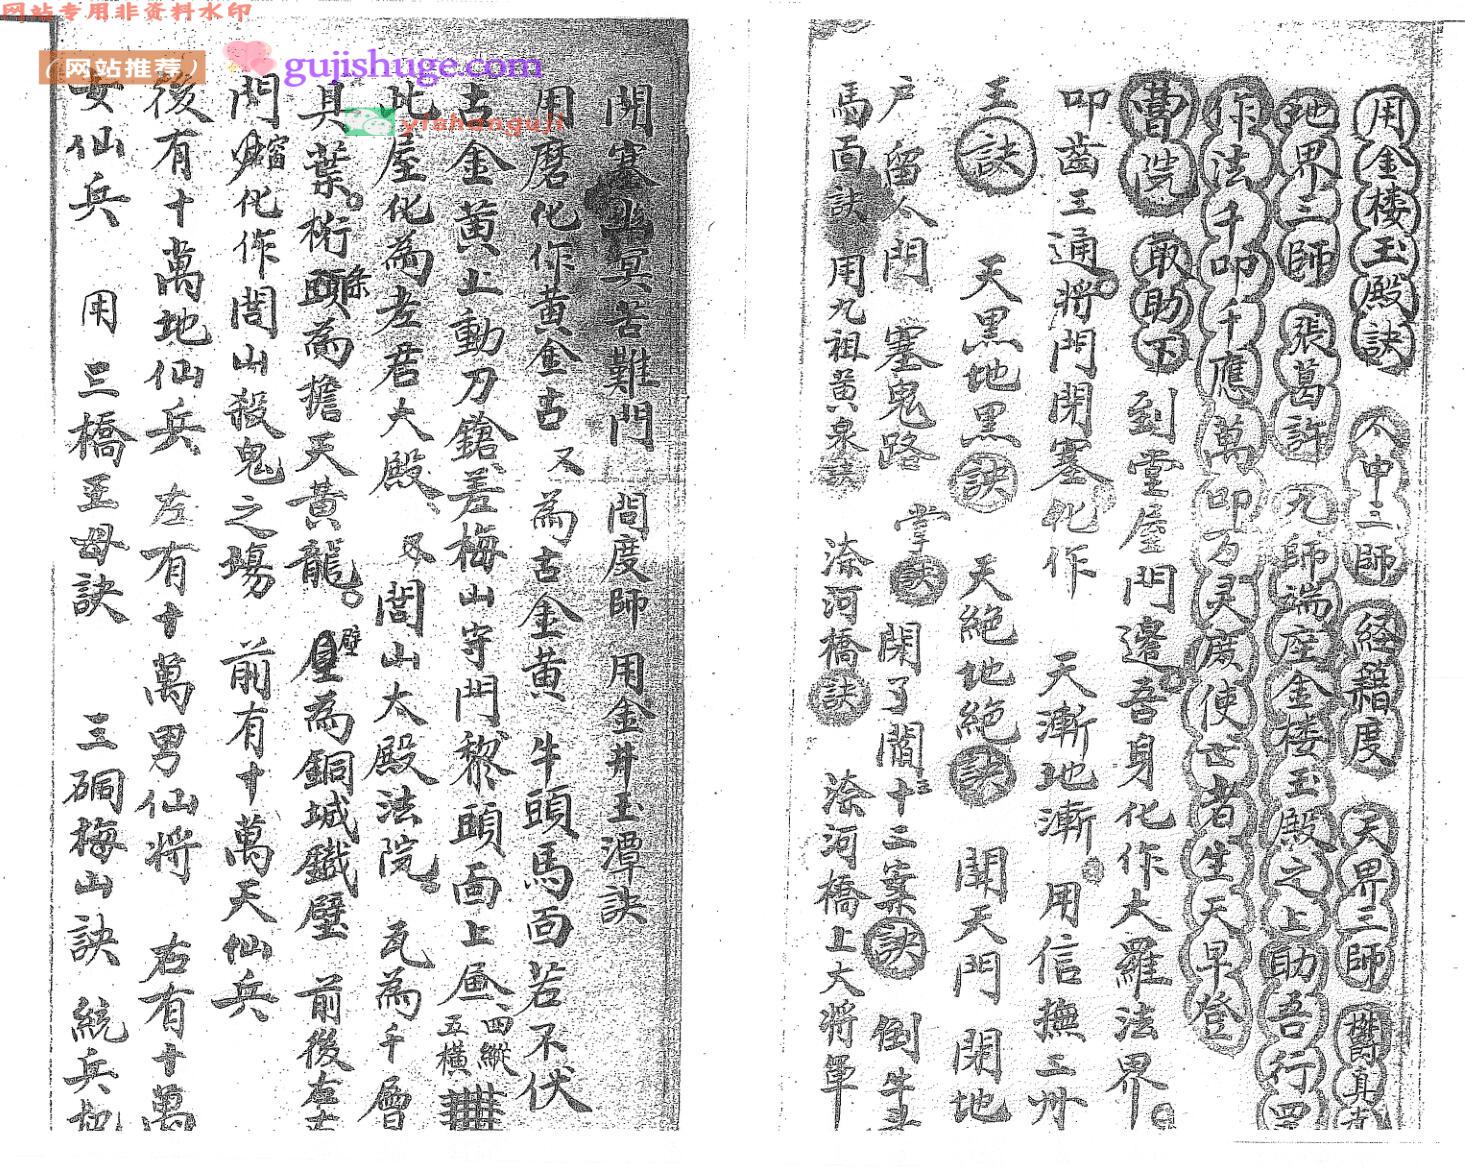 网站专用非资料水印
(网站推荐)
gujishuge.com
yishanguji
用金楼玉殿訣 大中三師 経籍度 天界三師 真
地界三師 張葛許 九師端座金楼玉殿之上助吾行
作法千叩千應萬叩万灵 使世者生天早登
曹院 取助下到堂屋門邊吾身化作大羅法界
叩齒三通將門閉塞化作 天漸地漸 用信撫二卅
王訣 天黑地黑訣 天絕地絕訣 開天門 閉地
户留人門 塞鬼路 掌訣 閉了 十二案訣 倒牛
馬面訣 用九祖黄泉訣 渿河橋訣 渿河橋上大將軍
閉塞幽冥苦難門 閭度師 用金井玉潭訣
用磨化作黄金古 又為古金黄 牛頭馬面若不伏
古金黄上動刀鎗 差梅山守門黎頭面上 四縱五横
此屋化為老君大殿 又閭山太殿法院 瓦為千層
具葉 桁條頭為擔天黄龍 壁為銅城鐵壁 前後左右
門窗化作閭山殺鬼之場 前有十萬天仙兵
後有十萬地仙兵 左有十萬男仙將 右有十萬
女仙兵 用三橋王母訣 三硐梅山訣 統兵